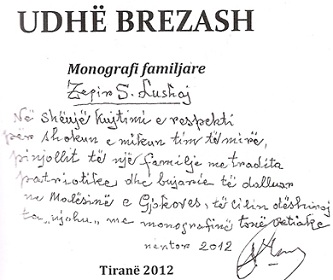 UDHË BREZASH
Monografi familjare
Zepir S. Lushaj
Në shënjë kujtimi e respekti
për shokun e mikun tim të mirë,
pinjollit të një familje me tradita
patriotike dhe bujarie të dalluar
në Malësinë e Gjakovës, të cilin dëshiroj
ta "njohu" me monografinë tonë vetiake
nentor 2012
Tiranë 2012